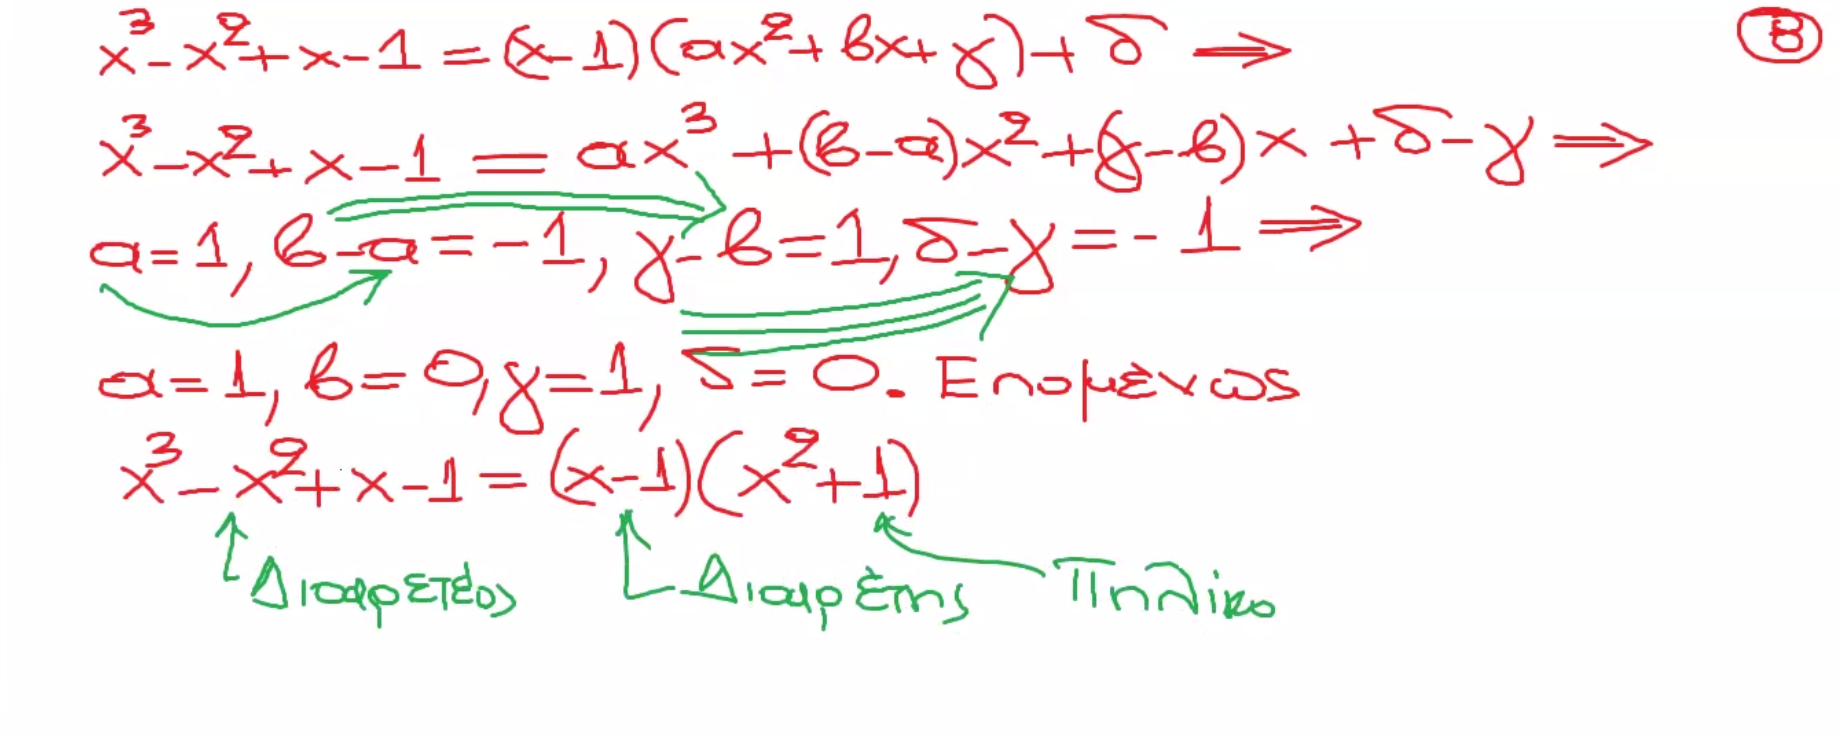 x³-x²+x-1=(x-1)(αx²+βx+γ)+δ ⟹
8
x³-x²+x-1=αx³+(β-α)x²+(γ-β)x+δ-γ ⟹
α=1, β-α=-1, γ-β=1, δ-γ=-1 ⟹
α=1, β=0, γ=1, δ=0. Επομένως
x³-x²+x-1=(x-1)(x²+1)
Διαιρετέος Διαιρέτης Πηλίκο